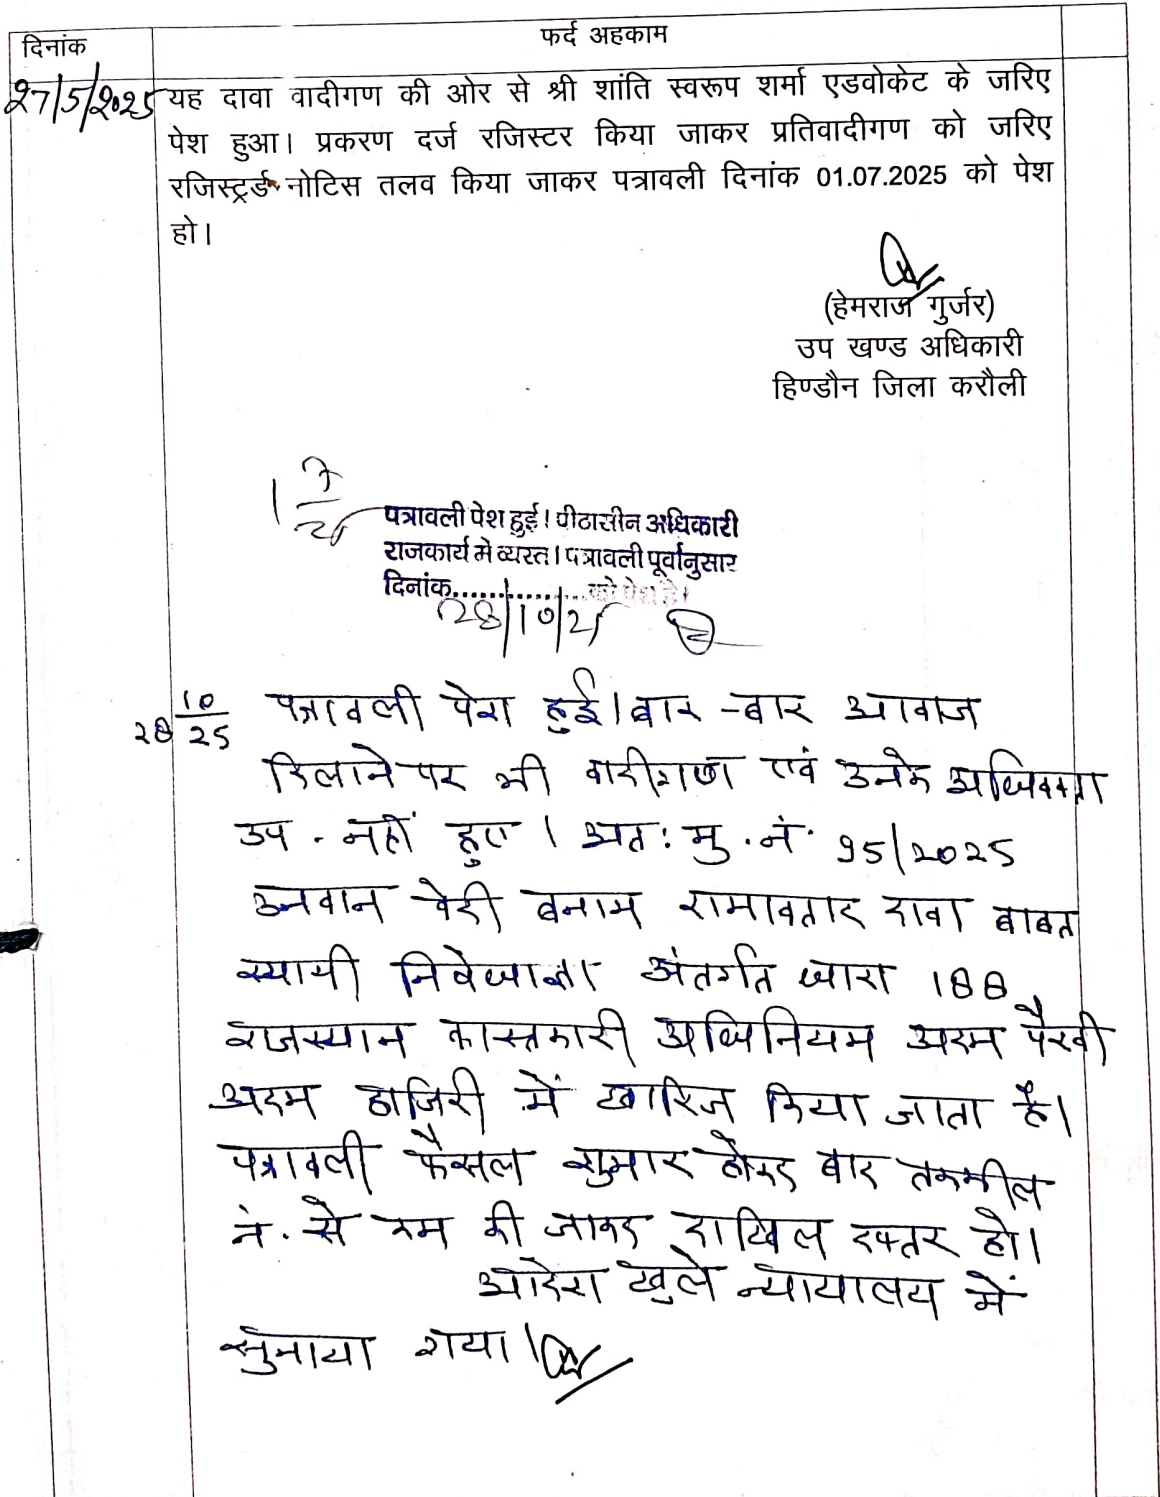 दिनांक
फर्द अहकाम
27/5/2025
यह दावा वादीगण की ओर से श्री शांति स्वरूप शर्मा एडवोकेट के जरिए
पेश हुआ। प्रकरण दर्ज रजिस्टर किया जाकर प्रतिवादीगण को जरिए
रजिस्ट्रर्ड नोटिस तलव किया जाकर पत्रावली दिनांक 01.07.2025 को पेश
हो।
(हेमराज गुर्जर)
उप खण्ड अधिकारी
हिण्डौन जिला करौली
1 7/25
पत्रावली पेश हुई। पीठासीन अधिकारी
राजकार्य मे व्यस्त। पत्रावली पूर्वानुसार
दिनांक...............को पेश है।
28/10/25
28 10/25
पत्रावली पेश हुई। बार-बार आवाज
दिलाने पर भी वादीगण एवं उनके अधिवक्ता
उप. नहीं हुए। अत: मु. नं. 95/2025
उनवान वेदी बनाम रामावतार दावा बाबत
स्थायी निषेधाज्ञा अंतर्गत धारा 188
राजस्थान कास्तकारी अधिनियम अदम पैरवी
अदम हाजिरी में खारिज किया जाता है।
पत्रावली फैसल शुमार होकर बाद तकमील
नं. से कम की जाकर दाखिल दफ्तर हो।
आदेश खुले न्यायालय में
सुनाया गया।